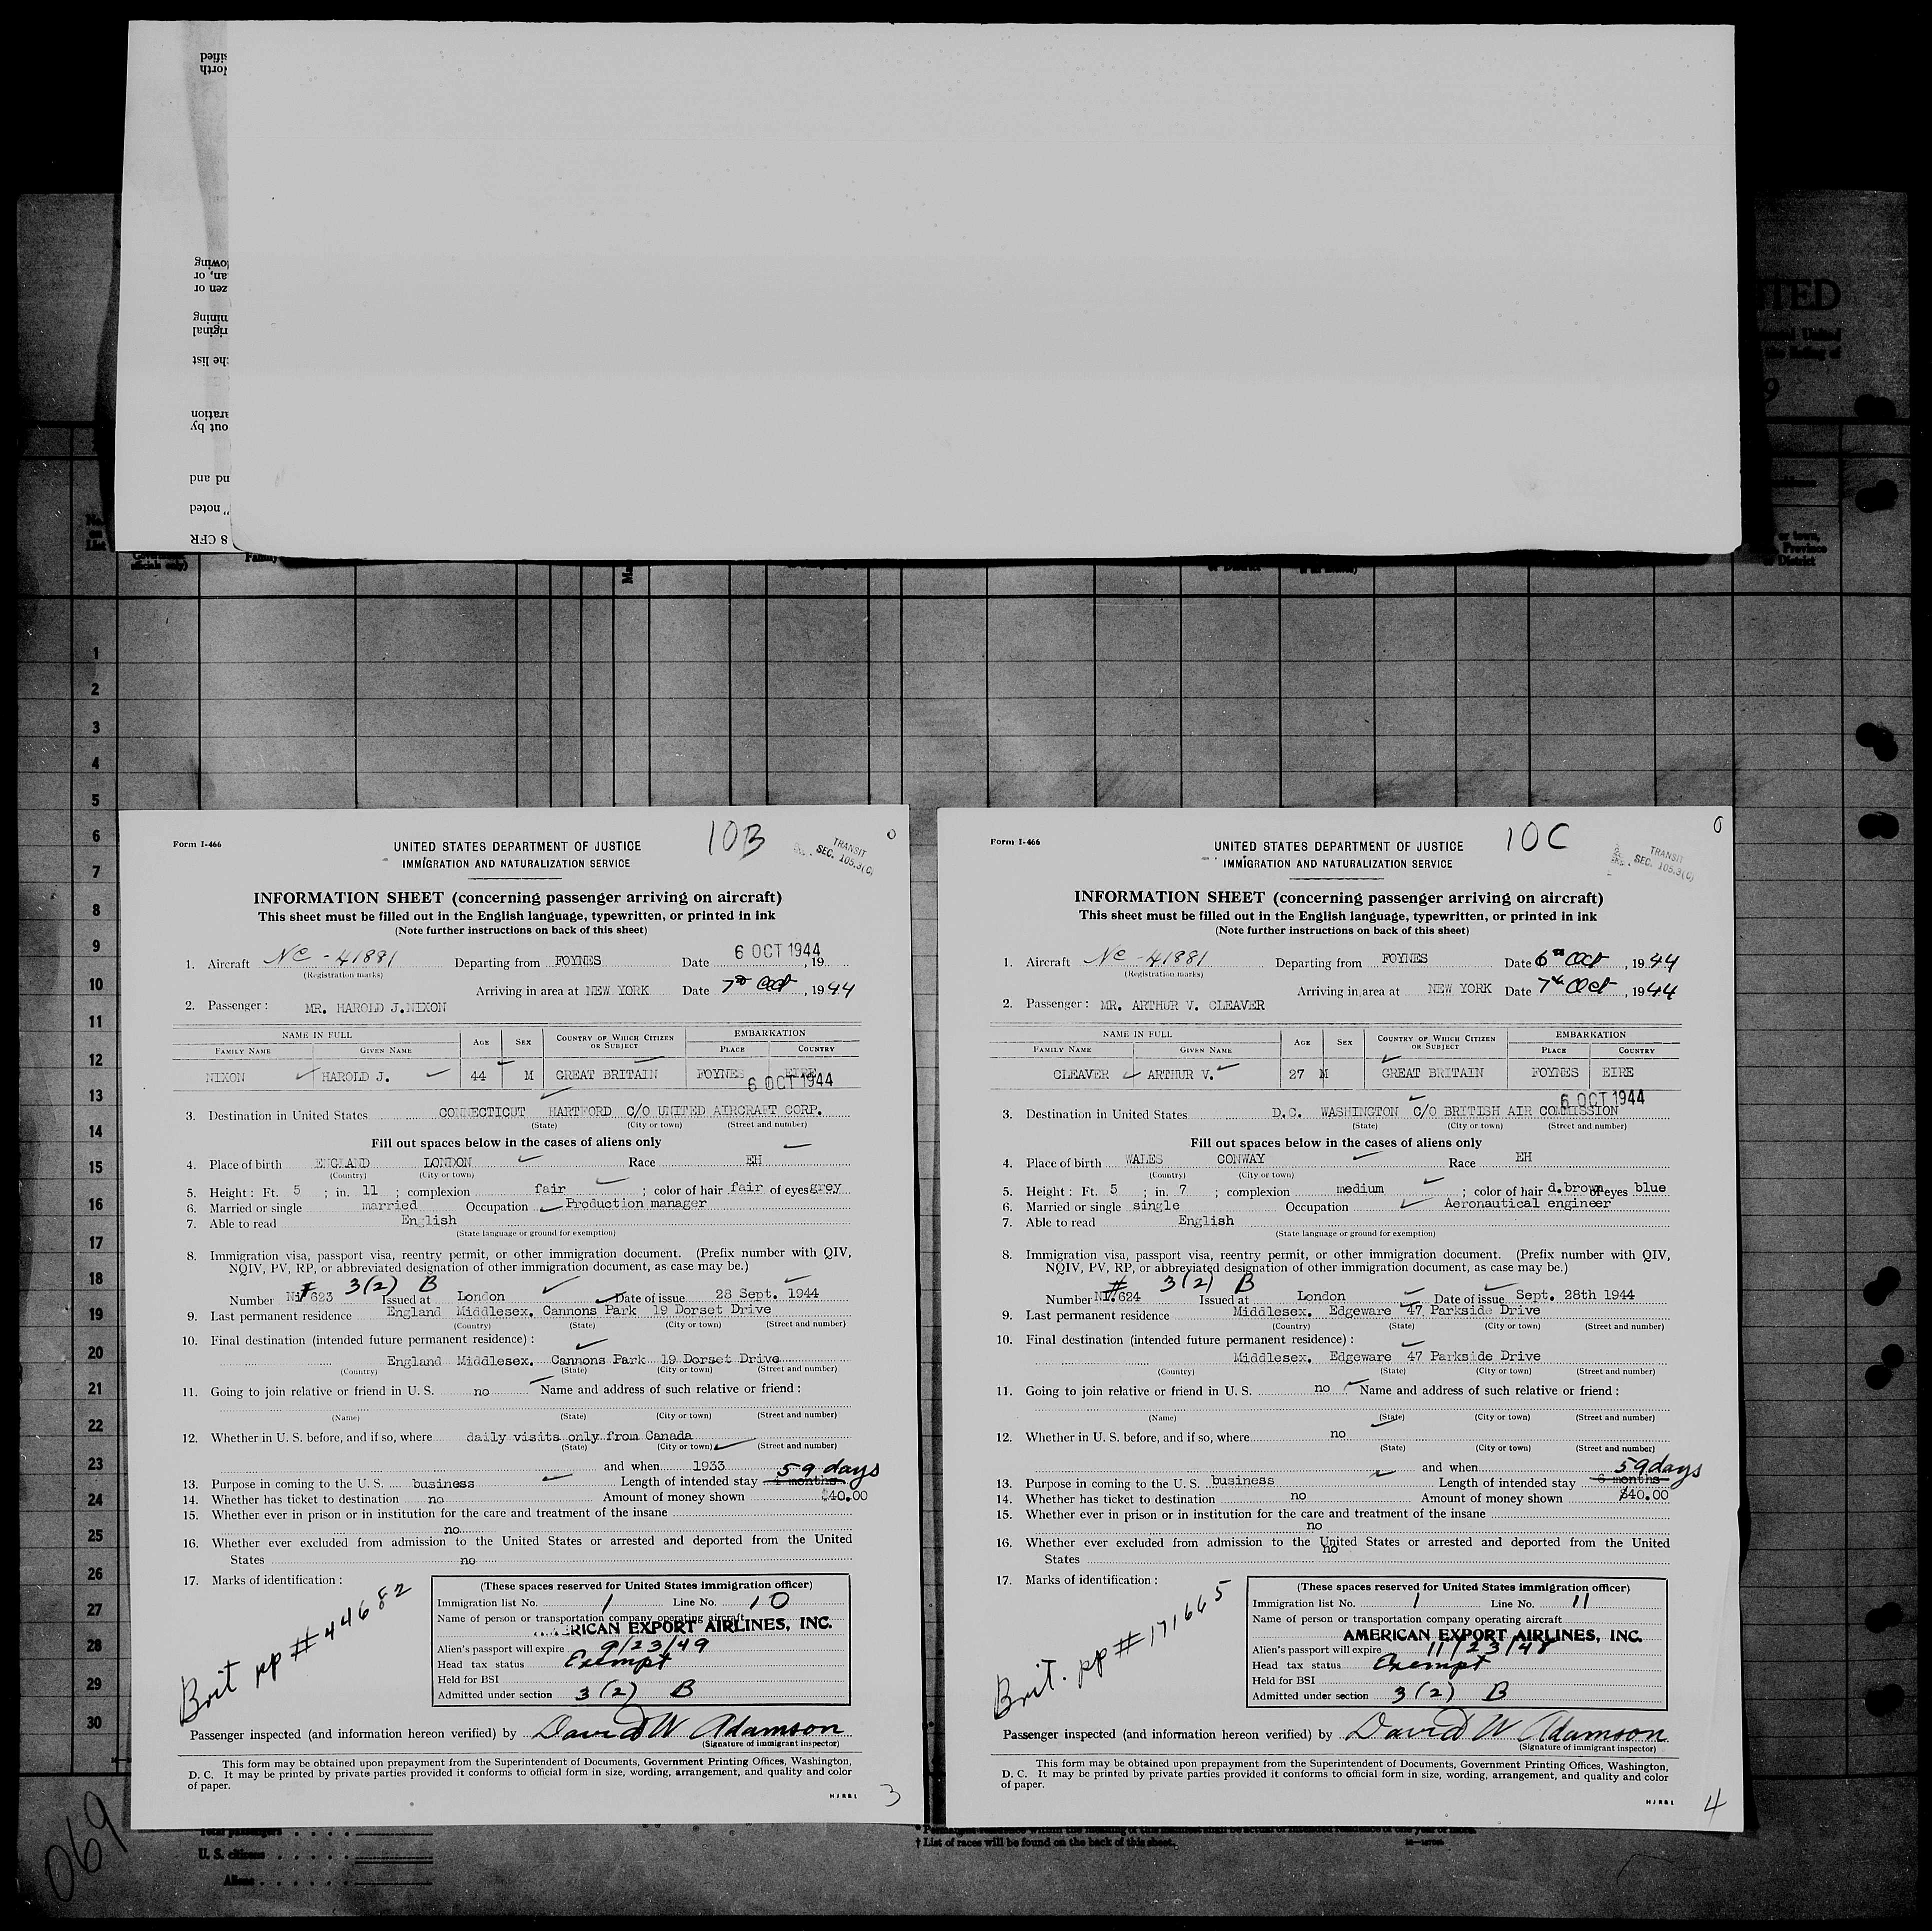 10B
TRANSIT
SEC. 105.3(C)
Form I-466
UNITED STATES DEPARTMENT OF JUSTICE
IMMIGRATION AND NATURALIZATION SERVICE
INFORMATION SHEET (concerning passenger arriving on aircraft)
This sheet must be filled out in the English language, typewritten, or printed in ink
(Note further instructions on back of this sheet)
1. Aircraft NC-41881 Departing from FOYNES Date 6 OCT 1944, 19
(Registration marks)
Arriving in area at NEW YORK Date 7th Oct, 1944
2. Passenger: MR. HAROLD J.NIXON
NAME IN FULL AGE SEX COUNTRY OF WHICH CITIZEN OR SUBJECT EMBARKATION
FAMILY NAME GIVEN NAME PLACE COUNTRY
NIXON HAROLD J. 44 M GREAT BRITAIN FOYNES EIRE
6 OCT 1944
3. Destination in United States CONNECTICUT HARTFORD C/O UNITED AIRCRAFT CORP.
(State) (City or town) (Street and number)
Fill out spaces below in the cases of aliens only
4. Place of birth ENGLAND LONDON Race EH
(Country) (City or town)
5. Height: Ft. 5 ; in. 11 ; complexion fair ; color of hair fair of eyes grey
6. Married or single married Occupation Production manager
7. Able to read English
(State language or ground for exemption)
8. Immigration visa, passport visa, reentry permit, or other immigration document. (Prefix number with QIV,
NQIV, PV, RP, or abbreviated designation of other immigration document, as case may be.)
3(2) B
Number 623 Issued at London Date of issue 28 Sept. 1944
9. Last permanent residence England Middlesex. Cannons Park 19 Dorset Drive
(Country) (State) (City or town) (Street and number)
10. Final destination (intended future permanent residence):
England Middlesex. Cannons Park 19 Dorset Drive
(Country) (State) (City or town) (Street and number)
11. Going to join relative or friend in U. S. no Name and address of such relative or friend:
(Name) (State) (City or town) (Street and number)
12. Whether in U. S. before, and if so, where daily visits only from Canada
(State) (City or town) (Street and number)
and when 1933 59 days
13. Purpose in coming to the U. S. business Length of intended stay months
14. Whether has ticket to destination no Amount of money shown $40.00
15. Whether ever in prison or in institution for the care and treatment of the insane
no
16. Whether ever excluded from admission to the United States or arrested and deported from the United
States no
17. Marks of identification:
Brit pp # 44682
(These spaces reserved for United States immigration officer)
Immigration list No. 1 Line No. 10
Name of person or transportation company operating aircraft
AMERICAN EXPORT AIRLINES, INC.
Alien's passport will expire 9/23/49
Head tax status Exempt
Held for BSI
Admitted under section 3(2) B
Passenger inspected (and information hereon verified) by David W Adamson
(Signature of immigrant inspector)
This form may be obtained upon prepayment from the Superintendent of Documents, Government Printing Offices, Washington,
D. C. It may be printed by private parties provided it conforms to official form in size, wording, arrangement, and quality and color
of paper.
3
10C
TRANSIT
SEC. 105.3(C)
Form I-466
UNITED STATES DEPARTMENT OF JUSTICE
IMMIGRATION AND NATURALIZATION SERVICE
INFORMATION SHEET (concerning passenger arriving on aircraft)
This sheet must be filled out in the English language, typewritten, or printed in ink
(Note further instructions on back of this sheet)
1. Aircraft NC-41881 Departing from FOYNES Date 6th Oct, 1944
(Registration marks)
Arriving in area at NEW YORK Date 7th Oct, 1944
2. Passenger: MR. ARTHUR V. CLEAVER
NAME IN FULL AGE SEX COUNTRY OF WHICH CITIZEN OR SUBJECT EMBARKATION
FAMILY NAME GIVEN NAME PLACE COUNTRY
CLEAVER ARTHUR V. 27 M GREAT BRITAIN FOYNES EIRE
6 OCT 1944
3. Destination in United States D.C. WASHINGTON C/O BRITISH AIR COMMISSION
(State) (City or town) (Street and number)
Fill out spaces below in the cases of aliens only
4. Place of birth WALES CONWAY Race EH
(Country) (City or town)
5. Height: Ft. 5 ; in. 7 ; complexion medium ; color of hair d.brown of eyes blue
6. Married or single single Occupation Aeronautical engineer
7. Able to read English
(State language or ground for exemption)
8. Immigration visa, passport visa, reentry permit, or other immigration document. (Prefix number with QIV,
NQIV, PV, RP, or abbreviated designation of other immigration document, as case may be.)
# 3(2) B
Number 624 Issued at London Date of issue Sept. 28th 1944
9. Last permanent residence Middlesex. Edgeware 47 Parkside Drive
(Country) (State) (City or town) (Street and number)
10. Final destination (intended future permanent residence):
Middlesex. Edgeware 47 Parkside Drive
(Country) (State) (City or town) (Street and number)
11. Going to join relative or friend in U. S. no Name and address of such relative or friend:
(Name) (State) (City or town) (Street and number)
12. Whether in U. S. before, and if so, where no
(State) (City or town) (Street and number)
and when 59 days
13. Purpose in coming to the U. S. business Length of intended stay 6 months
14. Whether has ticket to destination no Amount of money shown $40.00
15. Whether ever in prison or in institution for the care and treatment of the insane
no
16. Whether ever excluded from admission to the United States or arrested and deported from the United
States no
17. Marks of identification:
Brit. pp # 171665
(These spaces reserved for United States immigration officer)
Immigration list No. 1 Line No. 11
Name of person or transportation company operating aircraft
AMERICAN EXPORT AIRLINES, INC.
Alien's passport will expire 11/23/48
Head tax status Exempt
Held for BSI
Admitted under section 3(2) B
Passenger inspected (and information hereon verified) by David W Adamson
(Signature of immigrant inspector)
This form may be obtained upon prepayment from the Superintendent of Documents, Government Printing Offices, Washington,
D. C. It may be printed by private parties provided it conforms to official form in size, wording, arrangement, and quality and color
of paper.
4
069
U. S. citizens
Aliens
† List of races will be found on the back of this sheet.